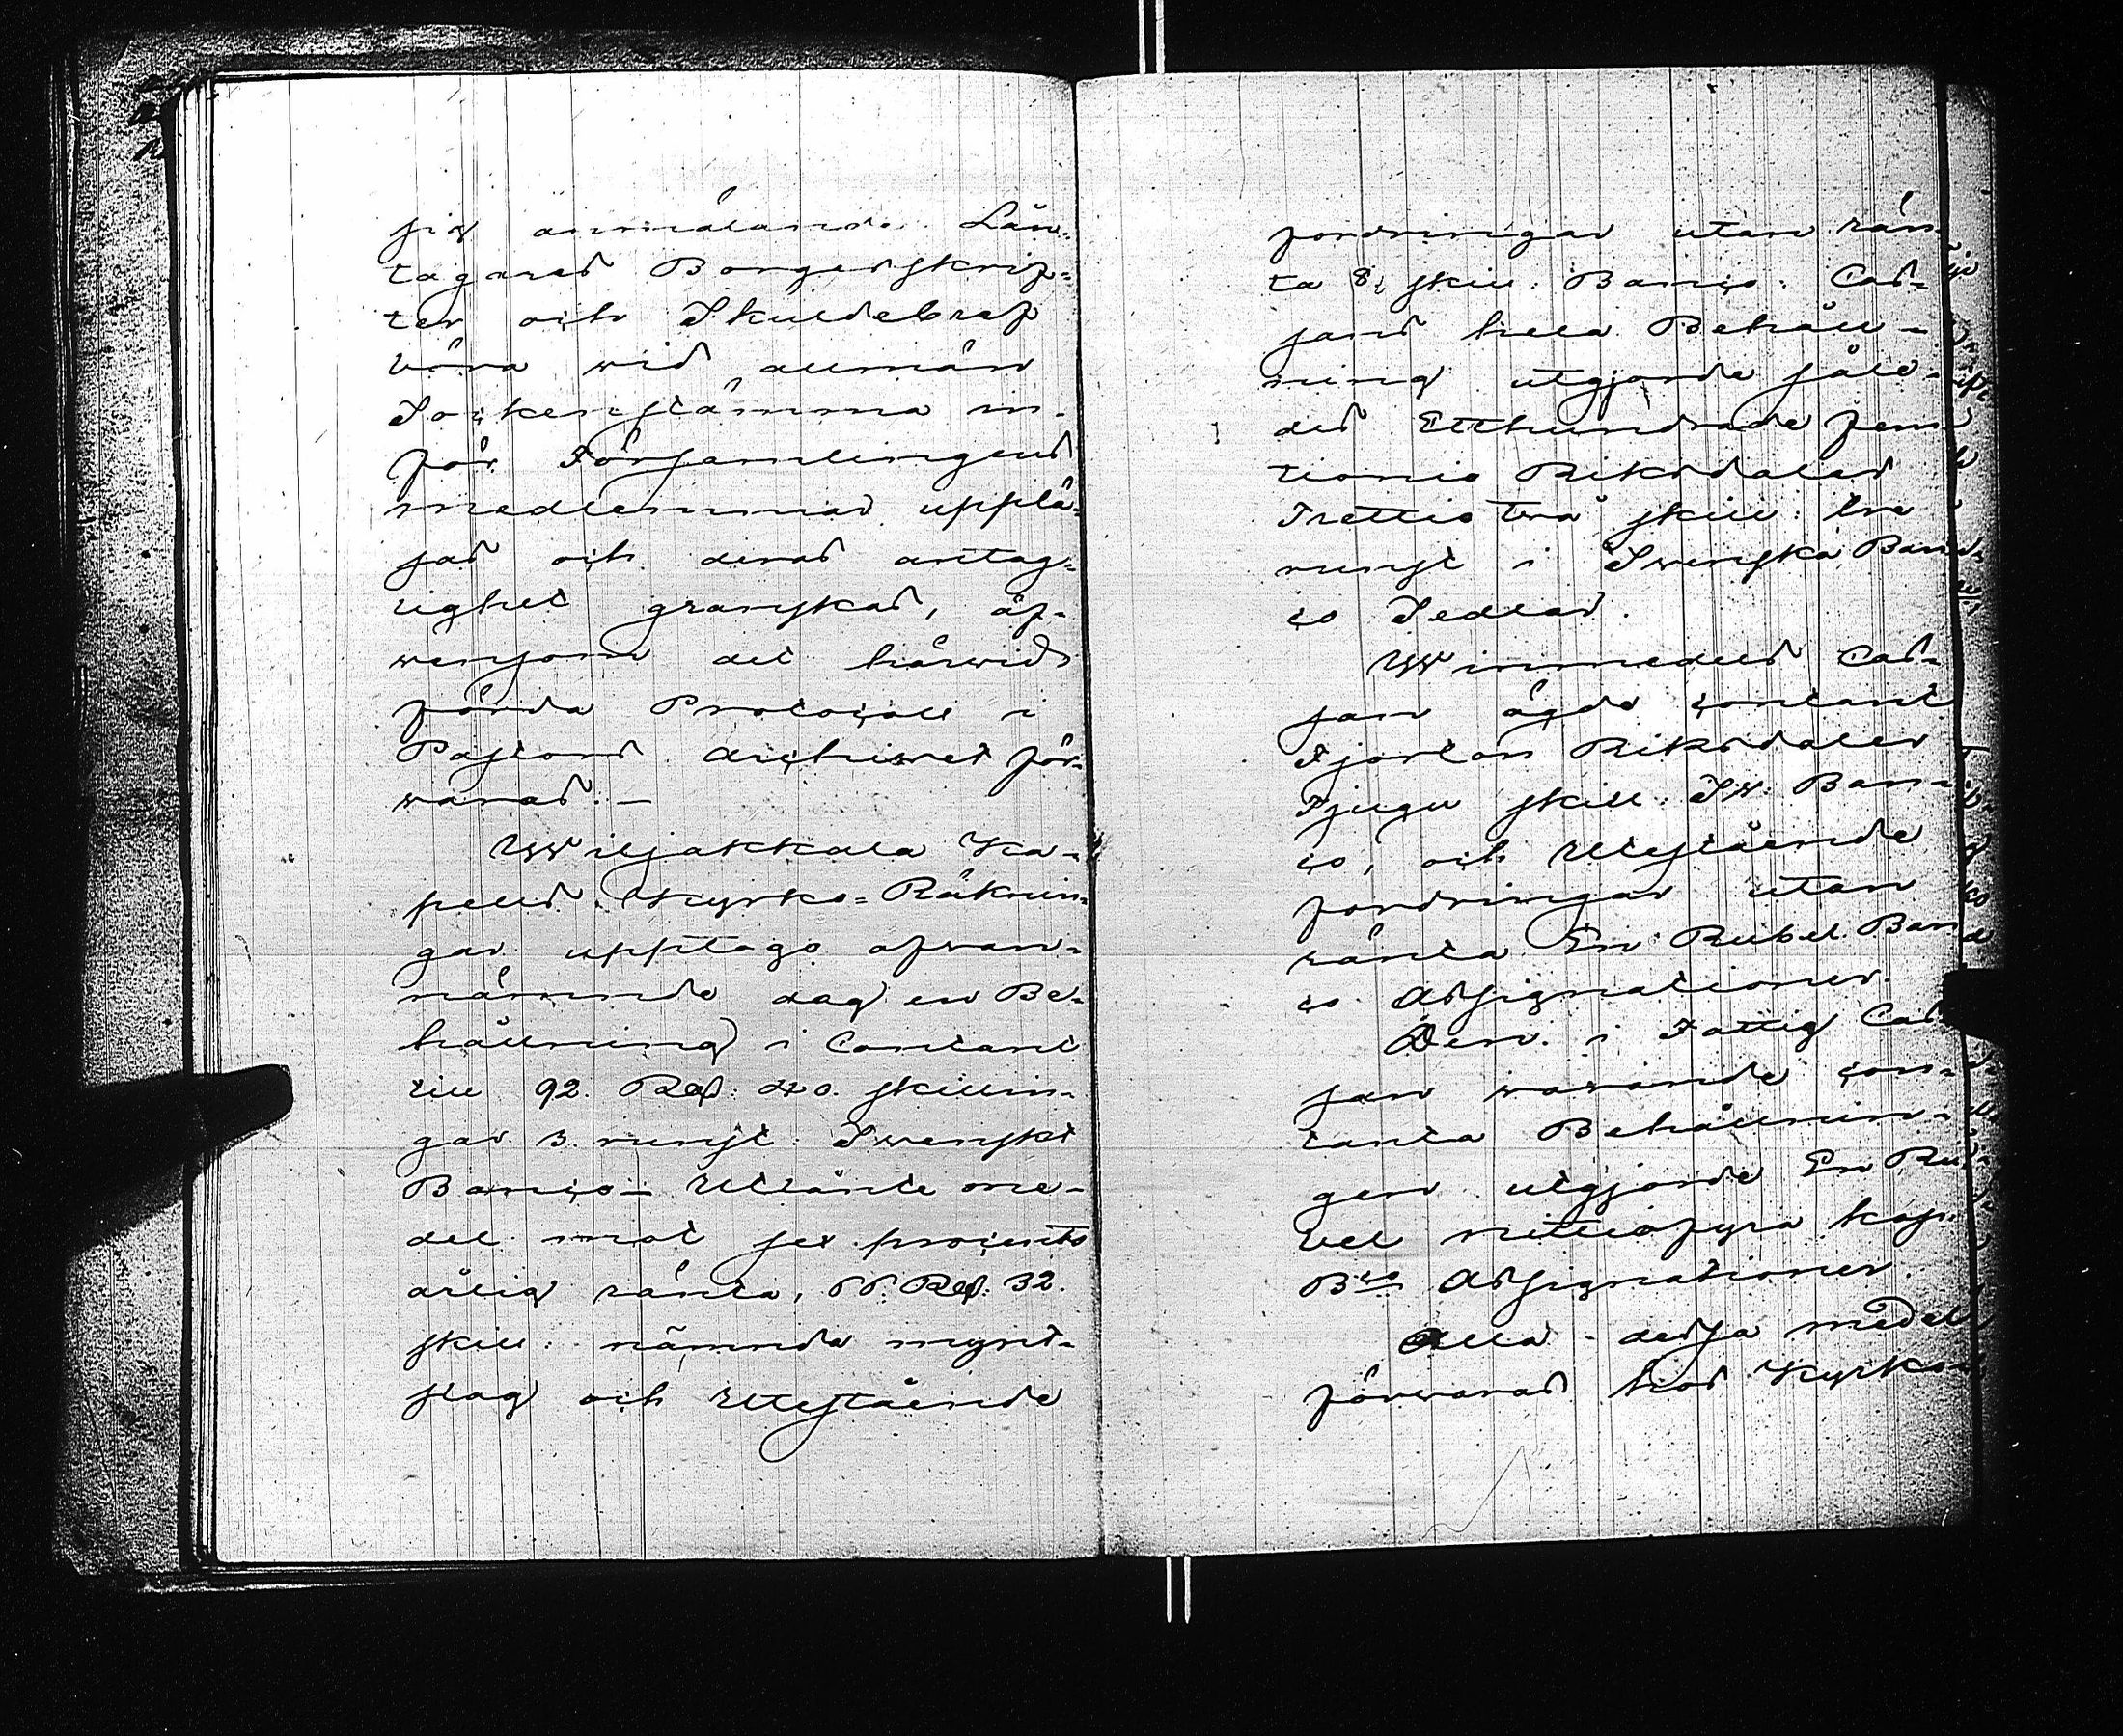 sig anmälande Lån-
tagares Borgesskrif-
ter och Skuldebref
böra wid allmän
Sockenstämma in-
för Församlingens
medlemmar upplä-
sas och deras antag-
lighet granskas, äf-
wensom det härwid
förda Protocoll i
Pastors Archivet för-
waras. —
Wiljakkala Ka-
pells Kyrko-Räknin-
gar upptogo ofwan-
nämnde dag en Be-
hållning i Contant
till 92. Rd: 20. skillin-
gar 3. runst: Swenskt
Banco — Utlånte me-
del mot sex procents
årlig ränta, 66. Rd: 32.
skill: nämnda mynt-
slag och Utestående
fordringar utan rän-
ta 8: skill: Banco: Cas-
sans hela Behåll-
ning utgjorde såle-
des Etthundrade fem
tionio Riksdaler
Trettio två skill: tre
runst i Swenska Ban-
co Sedlar.
Winmedels Cas-
san ägde contant
Fjorton Riksdaler
Tjugu skill: Sw: Ban-
co, och Utestående
fordringar utan
ränta En Rubel Ban
co Assignationer.
Den i Fattig Cas-
san warande con-
tanta Behållnin-
gen utgjorde En Ru-
bel nittiofyra kop:
Bco Assignationer.
Alla dessa medel
förwaras hos Kyrko-